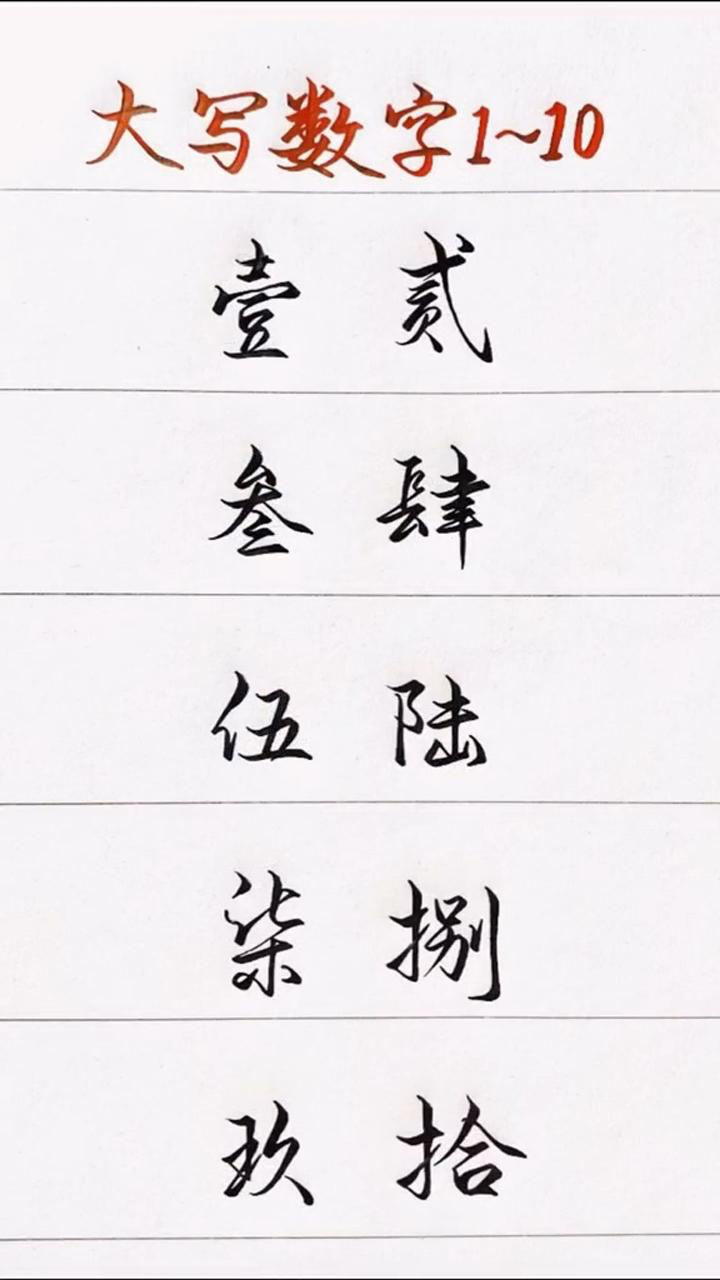 大写数字1~10
壹 贰
叁 肆
伍 陆
柒 捌
玖 拾